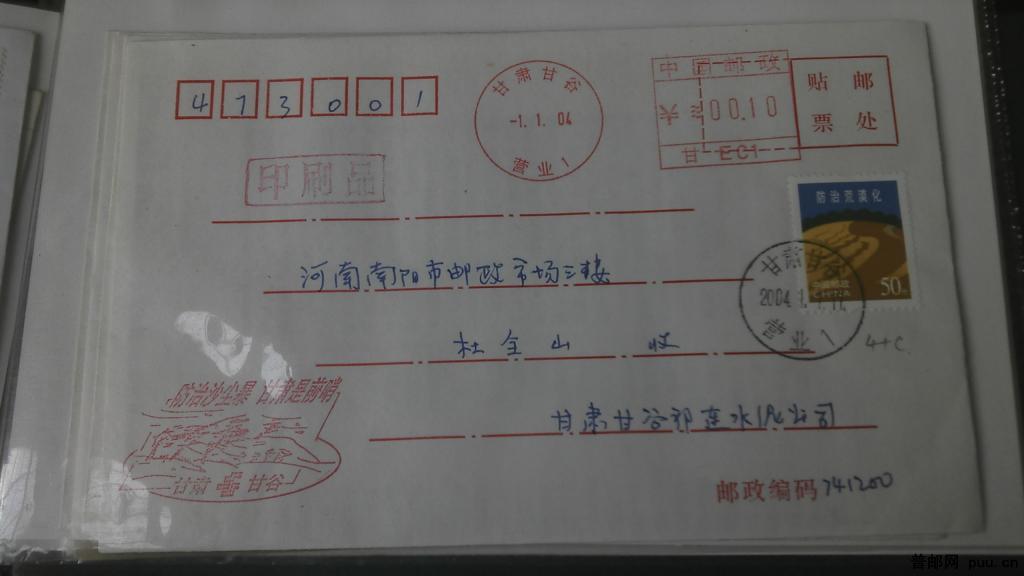 473001
甘肃甘谷
-1.1.04
营业1
中国邮政
00.10
甘 EC1
贴 邮
票 处
印刷品
防治荒漠化
中国邮政
CHINA
50分
甘肃甘谷
2004.1.1.11
营业1
河南南阳市邮政市场三楼
杜全山 收
4+C
防治沙尘暴 甘肃是前哨
甘肃 甘谷
甘肃甘谷祁连水泥公司
邮政编码741200
普邮网 puu.cn